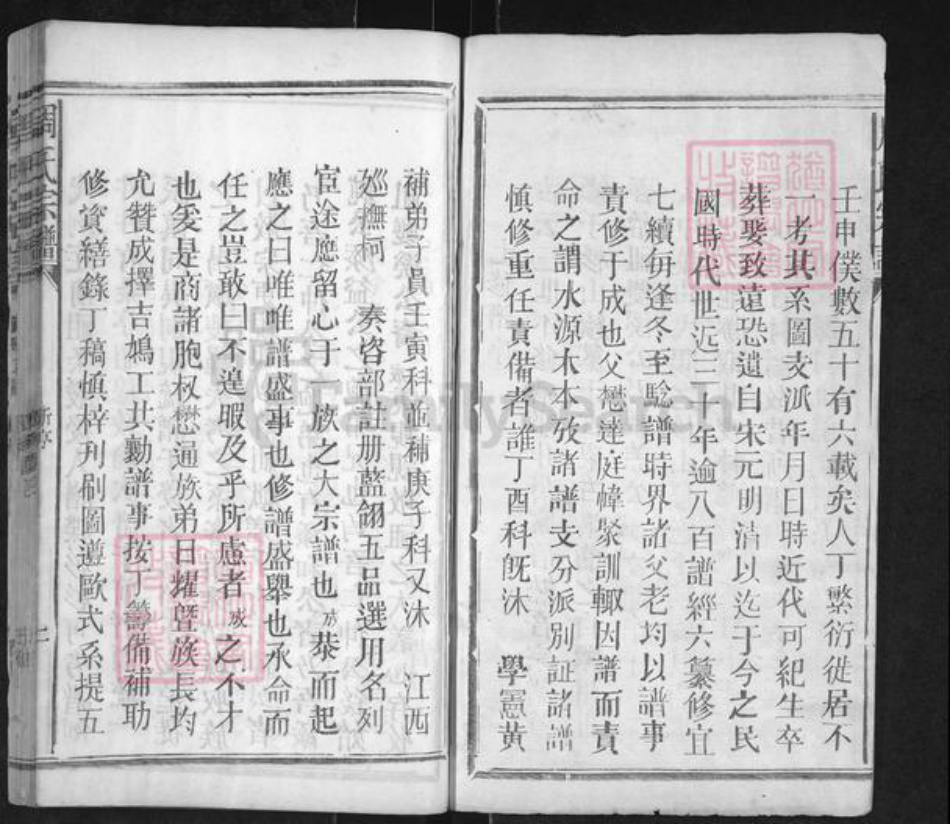 壬申僕數五十有六載矣人丁繁衍徙居不
一考其系圖支派年月日時近代可紀生卒
葬娶致遠恐遺自宋元明清以迄于今之民
國時代世近三十年逾八百譜經六纂修宜
七續每逢冬至騐譜時界諸父老均以譜事
責修于成也父懋達庭幃聚訓輙因譜而責
命之謂水源木本攷諸譜支分派別証諸譜
慎修重任責備者誰丁酉科旣沐 學憲黃
補弟子員壬寅科並補庚子科又沐 江西
廵撫柯 奏咨部註册藍翎五品選用名列
宦途應留心于一族之大宗譜也成恭而起
應之曰唯唯譜盛事也修譜盛舉也承命而
任之豈敢曰不遑暇及乎所慮者成之不才
也爰是商諸胞叔懋逼族弟日耀暨族長均
允贊成擇吉鳩工共勷譜事按丁籌備補助
修資繕錄丁稿慎梓刋刷圖遵歐式系提五
周氏宗譜
新序
二
FamilySearch